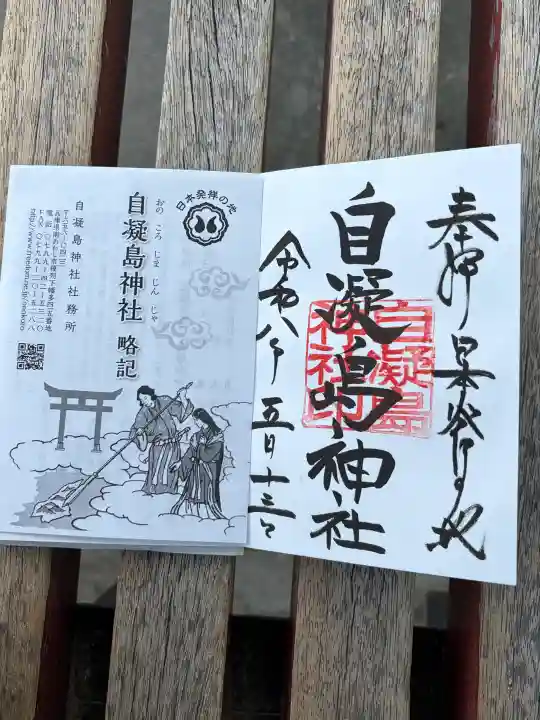 奉拝 日本発祥の地
自凝島神社
自凝島
神社印
令和八年 五月十三日
日本発祥の地
おのころじまじんじゃ
自凝島神社 略記
自凝島神社社務所